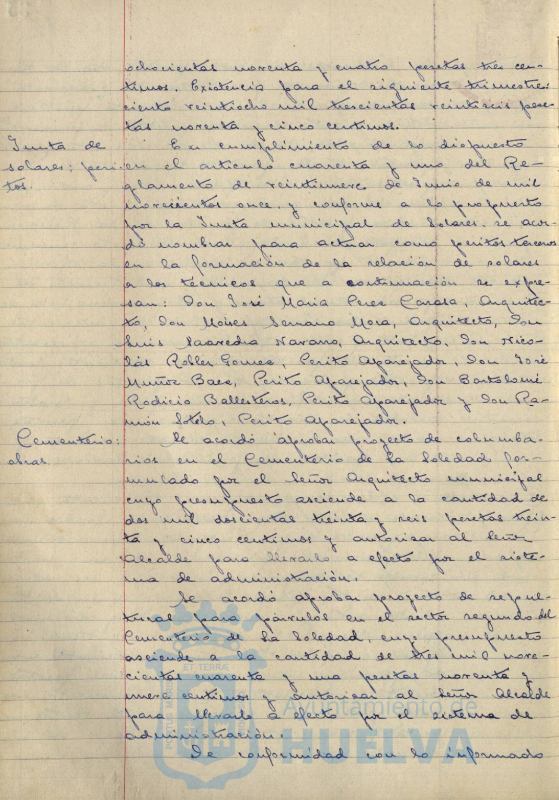 ochocientas noventa y cuatro pesetas tres cen-
timos. Existencia para el siguiente trimestre:
ciento veintiocho mil trescientas veintiseis pese-
tas noventa y cinco centimos.
Junta de
solares: peri-
tos.
En cumplimiento de lo dispuesto
en el articulo cuarenta y uno del Re-
glamento de veintinueve de Junio de mil
novecientos once, y conforme a lo propuesto
por la Junta municipal de Solares, se acor-
dó nombrar para actuar como peritos terceros
en la formación de la relación de solares
a los técnicos que a continuación se expre-
san: Don José Maria Perez Carasa, Arquitec-
to, Don Moises Serrano Mora, Arquitecto, Don
Luis Saavedra Navarro, Arquitecto, Don Nico-
lás Robles Gomez, Perito Aparejador, Don José
Muñoz Baez, Perito Aparejador, Don Bartolomé
Rodicio Ballesteros, Perito Aparejador y Don Ra-
món Sotelo, Perito Aparejador.
Cementerio:
obras.
Se acordó aprobar proyecto de columba-
rios en el Cementerio de la Soledad for-
mulado por el Señor Arquitecto municipal
cuyo presupuesto asciende a la cantidad de
dos mil doscientas treinta y seis pesetas trein-
ta y cinco centimos y autorizar al Señor
Alcalde para llevarlo a efecto por el siste-
ma de administración.
Se acordó aprobar proyecto de sepul-
turas para párvulos en el sector segundo del
Cementerio de la Soledad, cuyo presupuesto
asciende a la cantidad de tres mil nove-
cientas cuarenta y una pesetas noventa y
nueve centimos y autorizar al Señor Alcalde
para llevarlo a efecto por el sistema de
administración.
De conformidad con lo informado
Ayuntamiento de
HUELVA